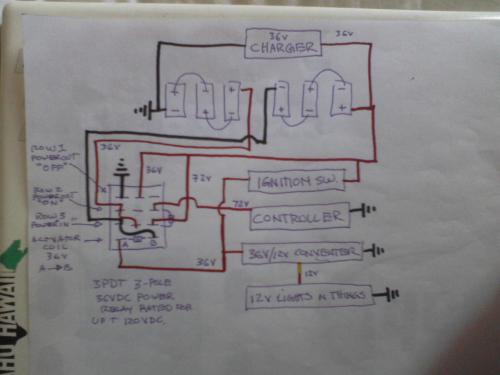 36V
CHARGER
36V
- +
+ -
- +
+ -
- +
+ -
36V
ROW 1
POWER OUT
"OFF"
36V
72V
IGNITION SW.
ROW 2
POWER OUT
"ON"
ROW 3
POWER IN
72V
CONTROLLER
ACTIVATOR
COIL
36V
A → B
A
B
36V
36V/12V CONVERTER
12V
12V LIGHTS N THINGS
3PDT 3-POLE
36VDC POWER
RELAY RATED FOR
UP T 120VDC.
HU HAWAII